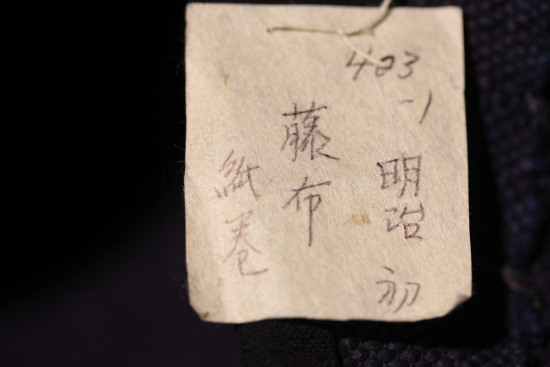 423
-1
明治初
藤布
紙巻